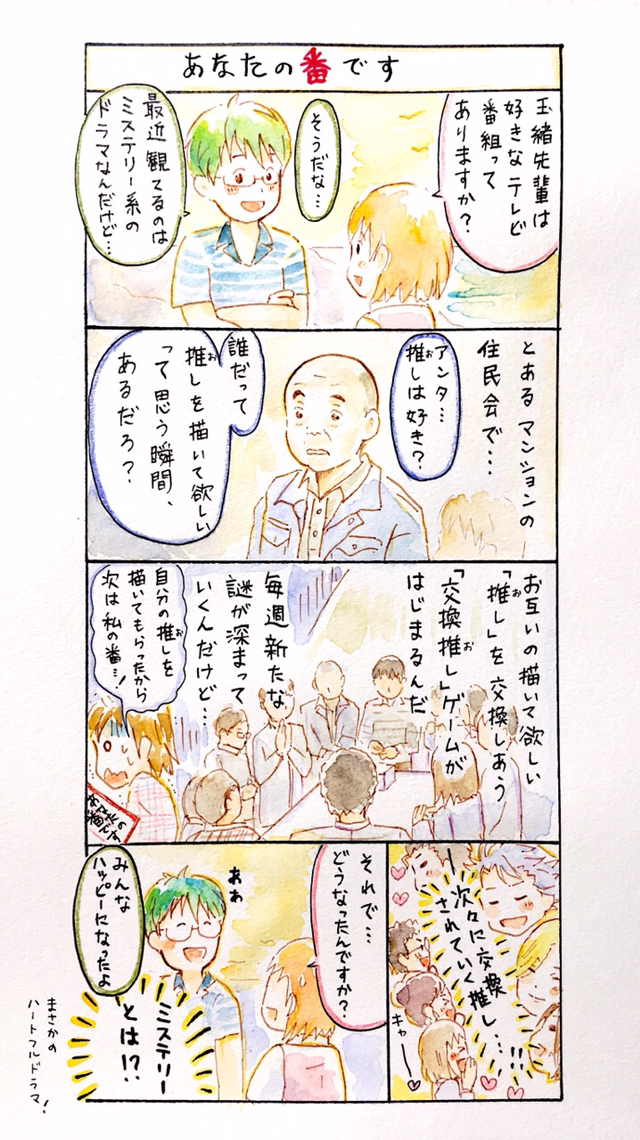 あなたの番です
玉緒先輩は
好きなテレビ
番組って
ありますか?
そうだな…
最近観てるのは
ミステリー系の
ドラマなんだけど…
とあるマンションの
住民会で…
アンタ…
推しは好き?
誰だって
推しを描いて欲しい
って思う瞬間、
あるだろ?
お互いの描いて欲しい
「推し」を交換しあう
「交換推し」ゲームが
はじまるんだ
毎週新たな
謎が深まって
いくんだけど…
自分の推しを
描いてもらったから
次は私の番…!
次々に交換
されていく推し…!!
キャー
それで…
どうなったんですか?
みんな
ハッピーになったよ
ミステリー
とは!?
まさかの
ハートフルドラマ!